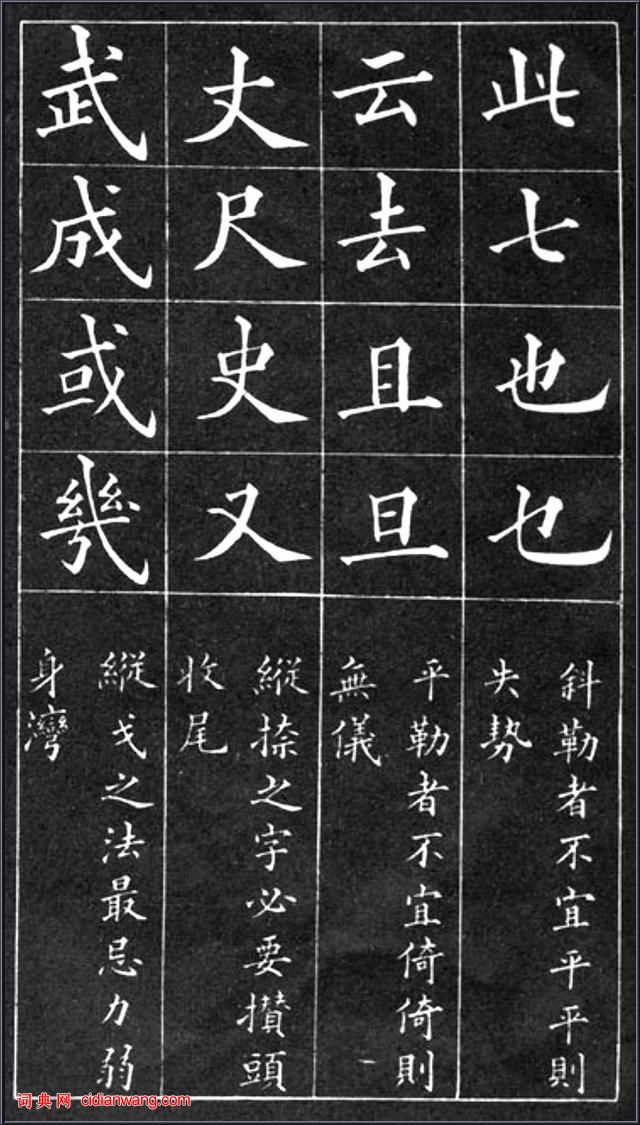 此七也乜
斜勒者不宜平平則
失勢
云去且旦
平勒者不宜倚倚則
無儀
丈尺史又
縱捺之字必要攢頭
收尾
武成或幾
縱戈之法最忌力弱
身灣
词典网 cidianwang.com